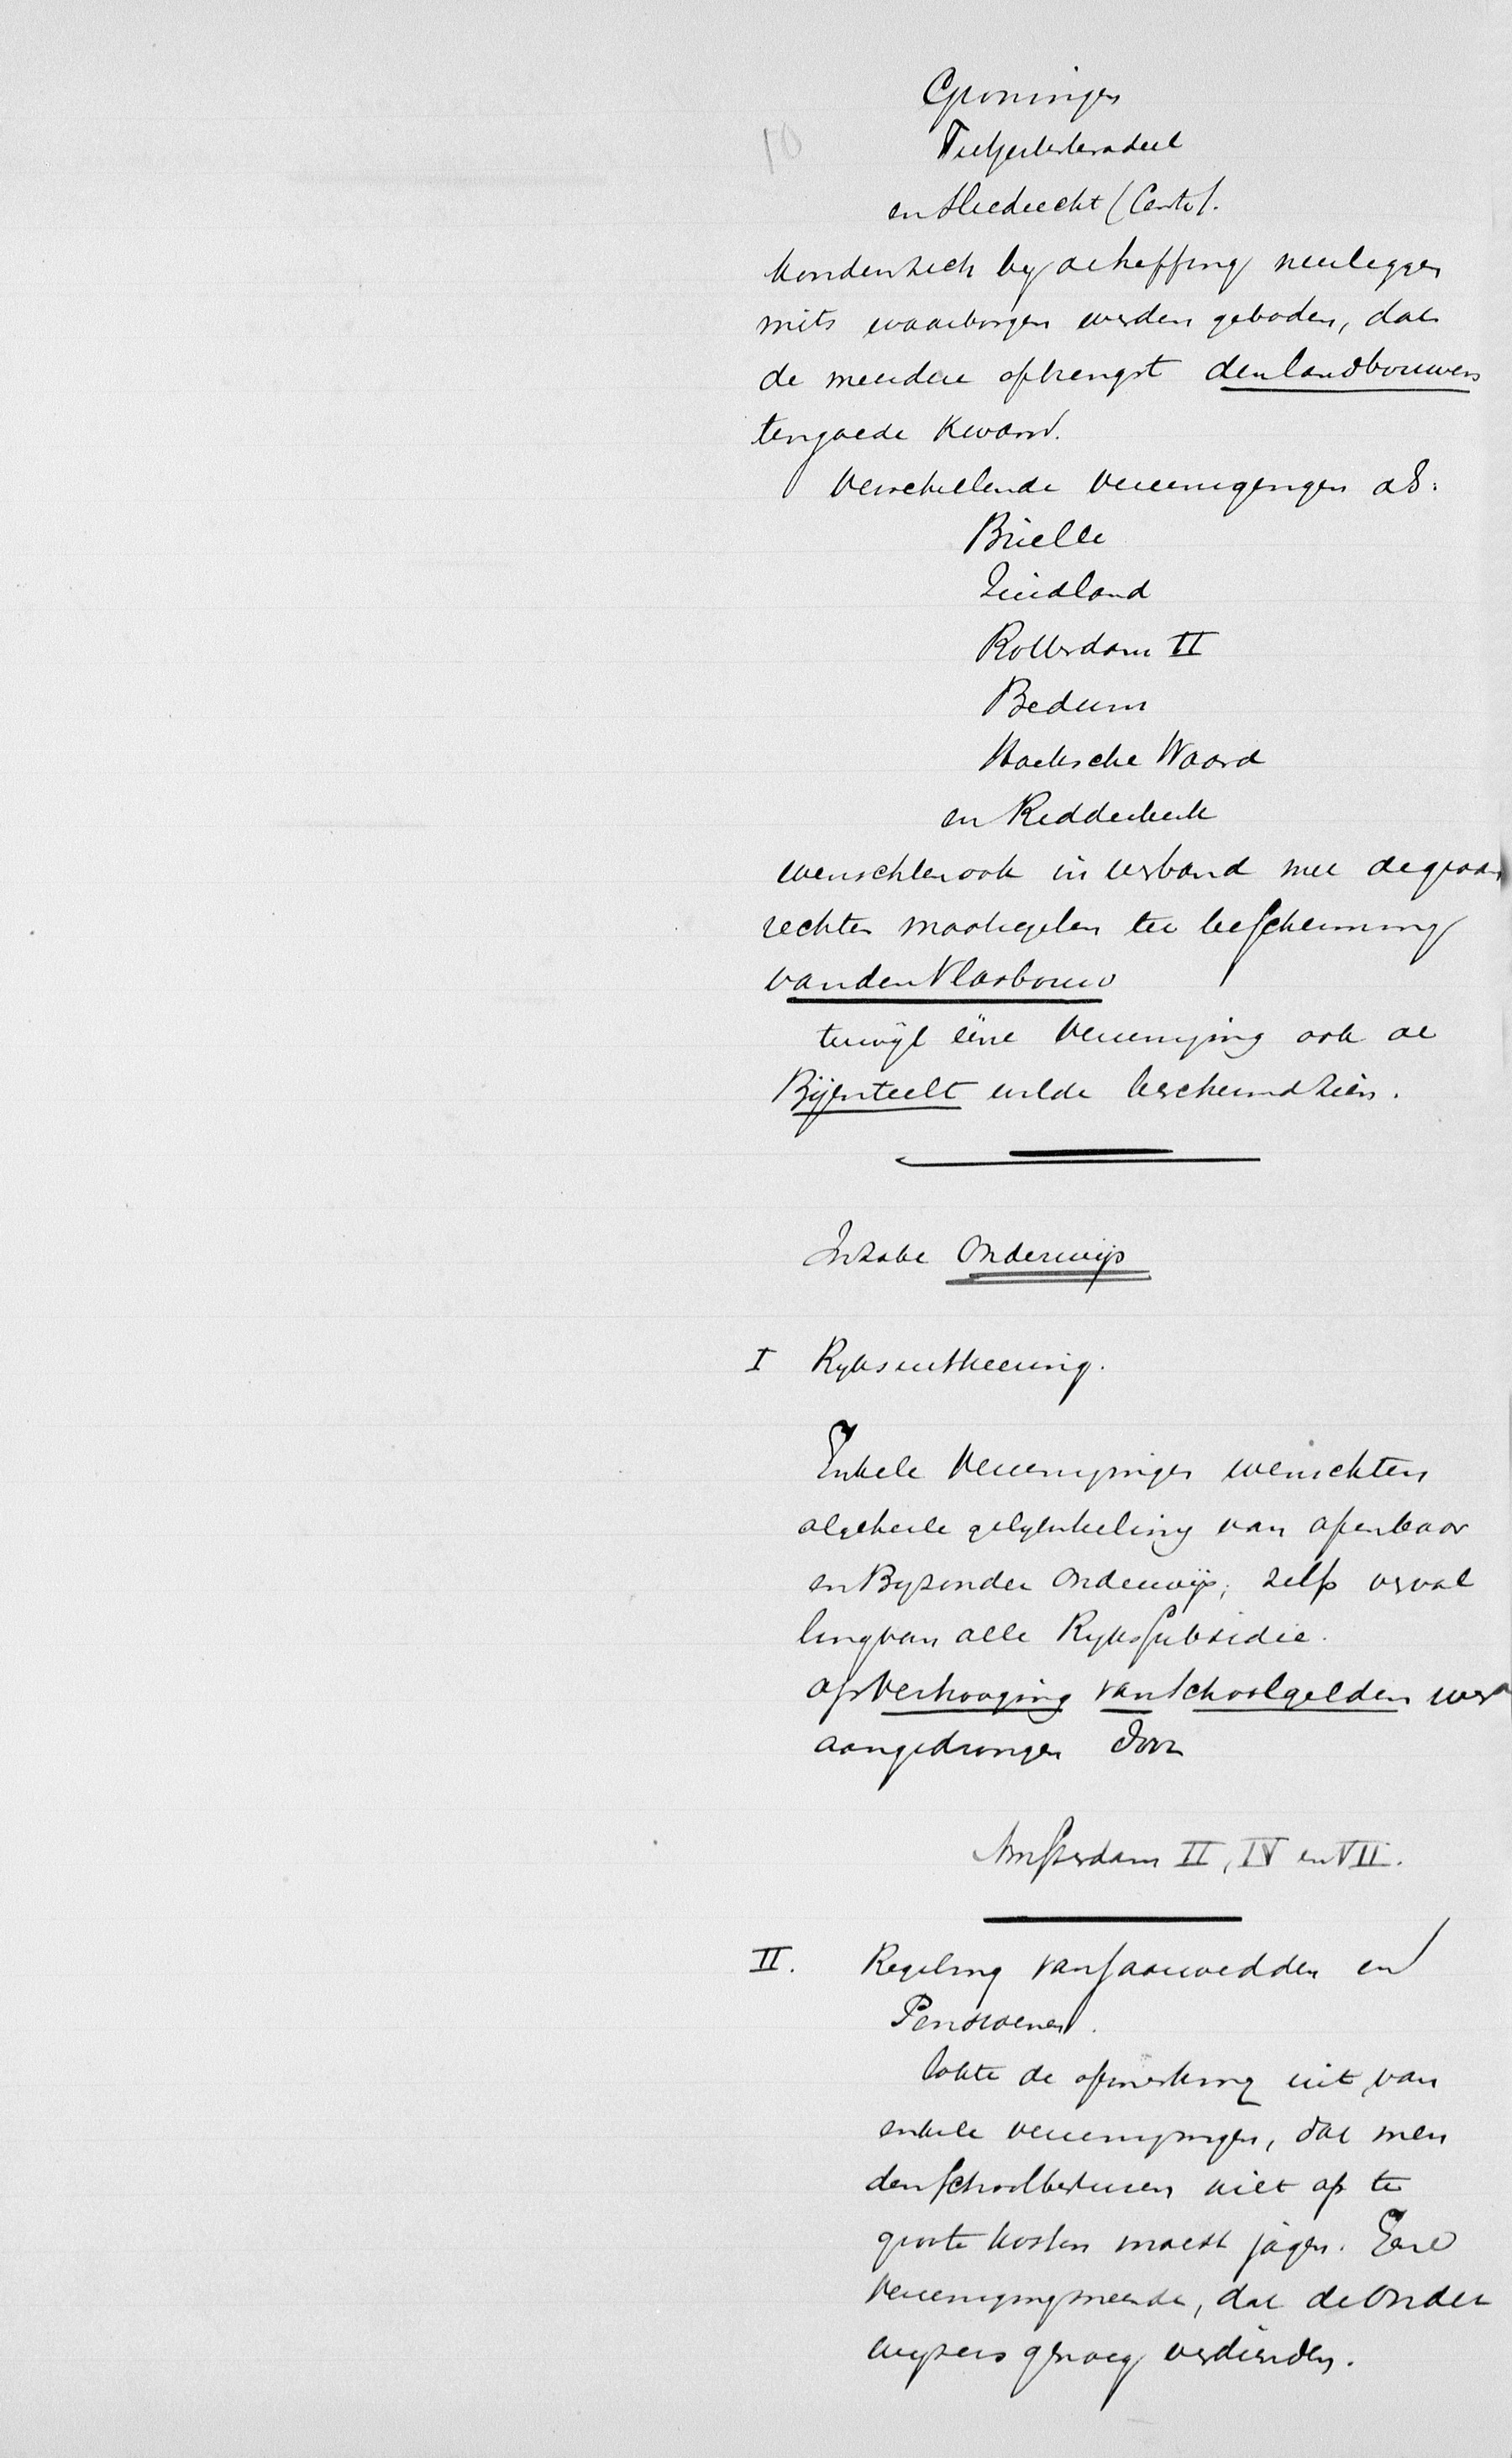 10
Groningen
Tietjerksteradeel
en Sliedrecht (Centr).
konden zich bij de heffing neerleggen
mits waarborgen werden geboden, dat
de meerdere opbrengst den landbouwers
ten goede kwam.
Verschillende Vereenigingen als:
Brielle
Zuidland
Rotterdam II
Bedum
Hoeksche Waard
en Ridderkerk
wenschten ook in verband met de graan
rechten maatregelen ter bescherming
van den Vlasbouw
terwijl ééne Vereeniging ook de
Bijenteelt wilde beschermd zien.
Inzake Onderwijs
I Ryksuitkeering.
Enkele Vereenigingen wenschten
algeheele gelykstelling van openbaar
en Byzonder Onderwijs, zelfs verval
ling van alle Ryks subsidie.
op Verhooging van Schoolgelden werd
aangedrongen door
Amsterdam II, IV en VII.
II. Regeling van Jaarwedden en
Pensioenen.
lokte de opmerking uit van
enkele vereenigingen, dat men
den schoolbesturen niet op te
groote kosten moest jagen. Eene
Vereeniging meende, dat de Onder
wyzers genoeg verdienden.